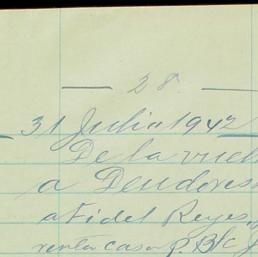 28
31 Julio 1942
De la vuel
a Deudores
a Fidel Reyes,
renta casa P. B/c